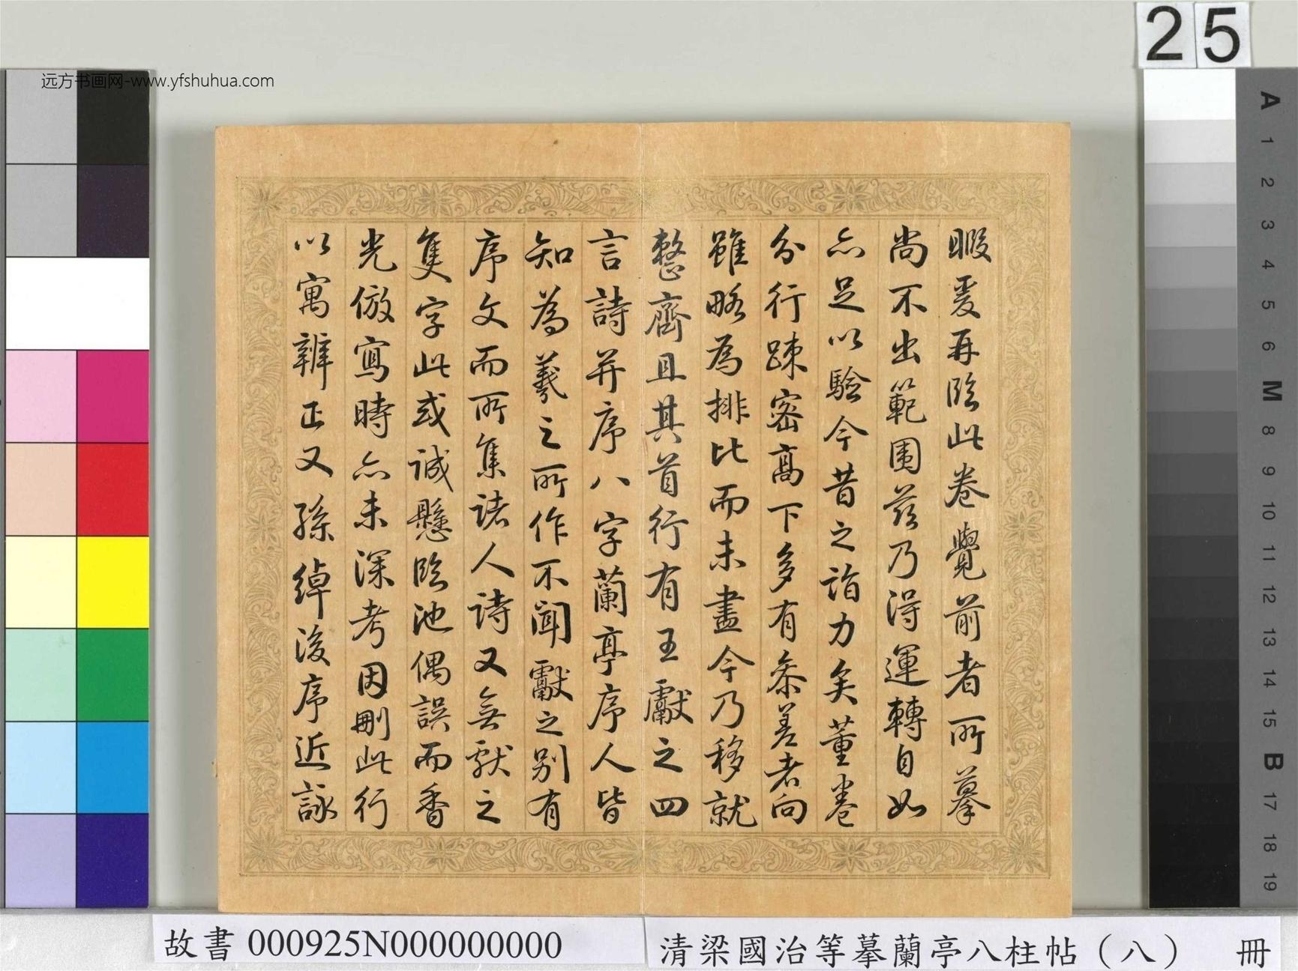 25
远方书画网-www.yfshuhua.com
暇爰再臨此卷覺前者所摹
尚不出範圍茲乃得運轉自如
亦足以驗今昔之詣力矣董卷
分行踈密高下多有叅差者向
雖略為排比而未盡今乃移就
整齊且其首行有王獻之四
言詩并序八字蘭亭序人皆
知為羲之所作不聞獻之别有
序文而所集諸人詩又無獻之
隻字此或誠懸臨池偶誤而香
光倣寫時亦未深考因刪此行
以寓辨正又孫綽後序近詠
A
1
2
3
4
5
6
M
8
9
10
11
12
13
14
15
B
17
18
19
故書000925N000000000
清梁國治等摹蘭亭八柱帖（八） 冊